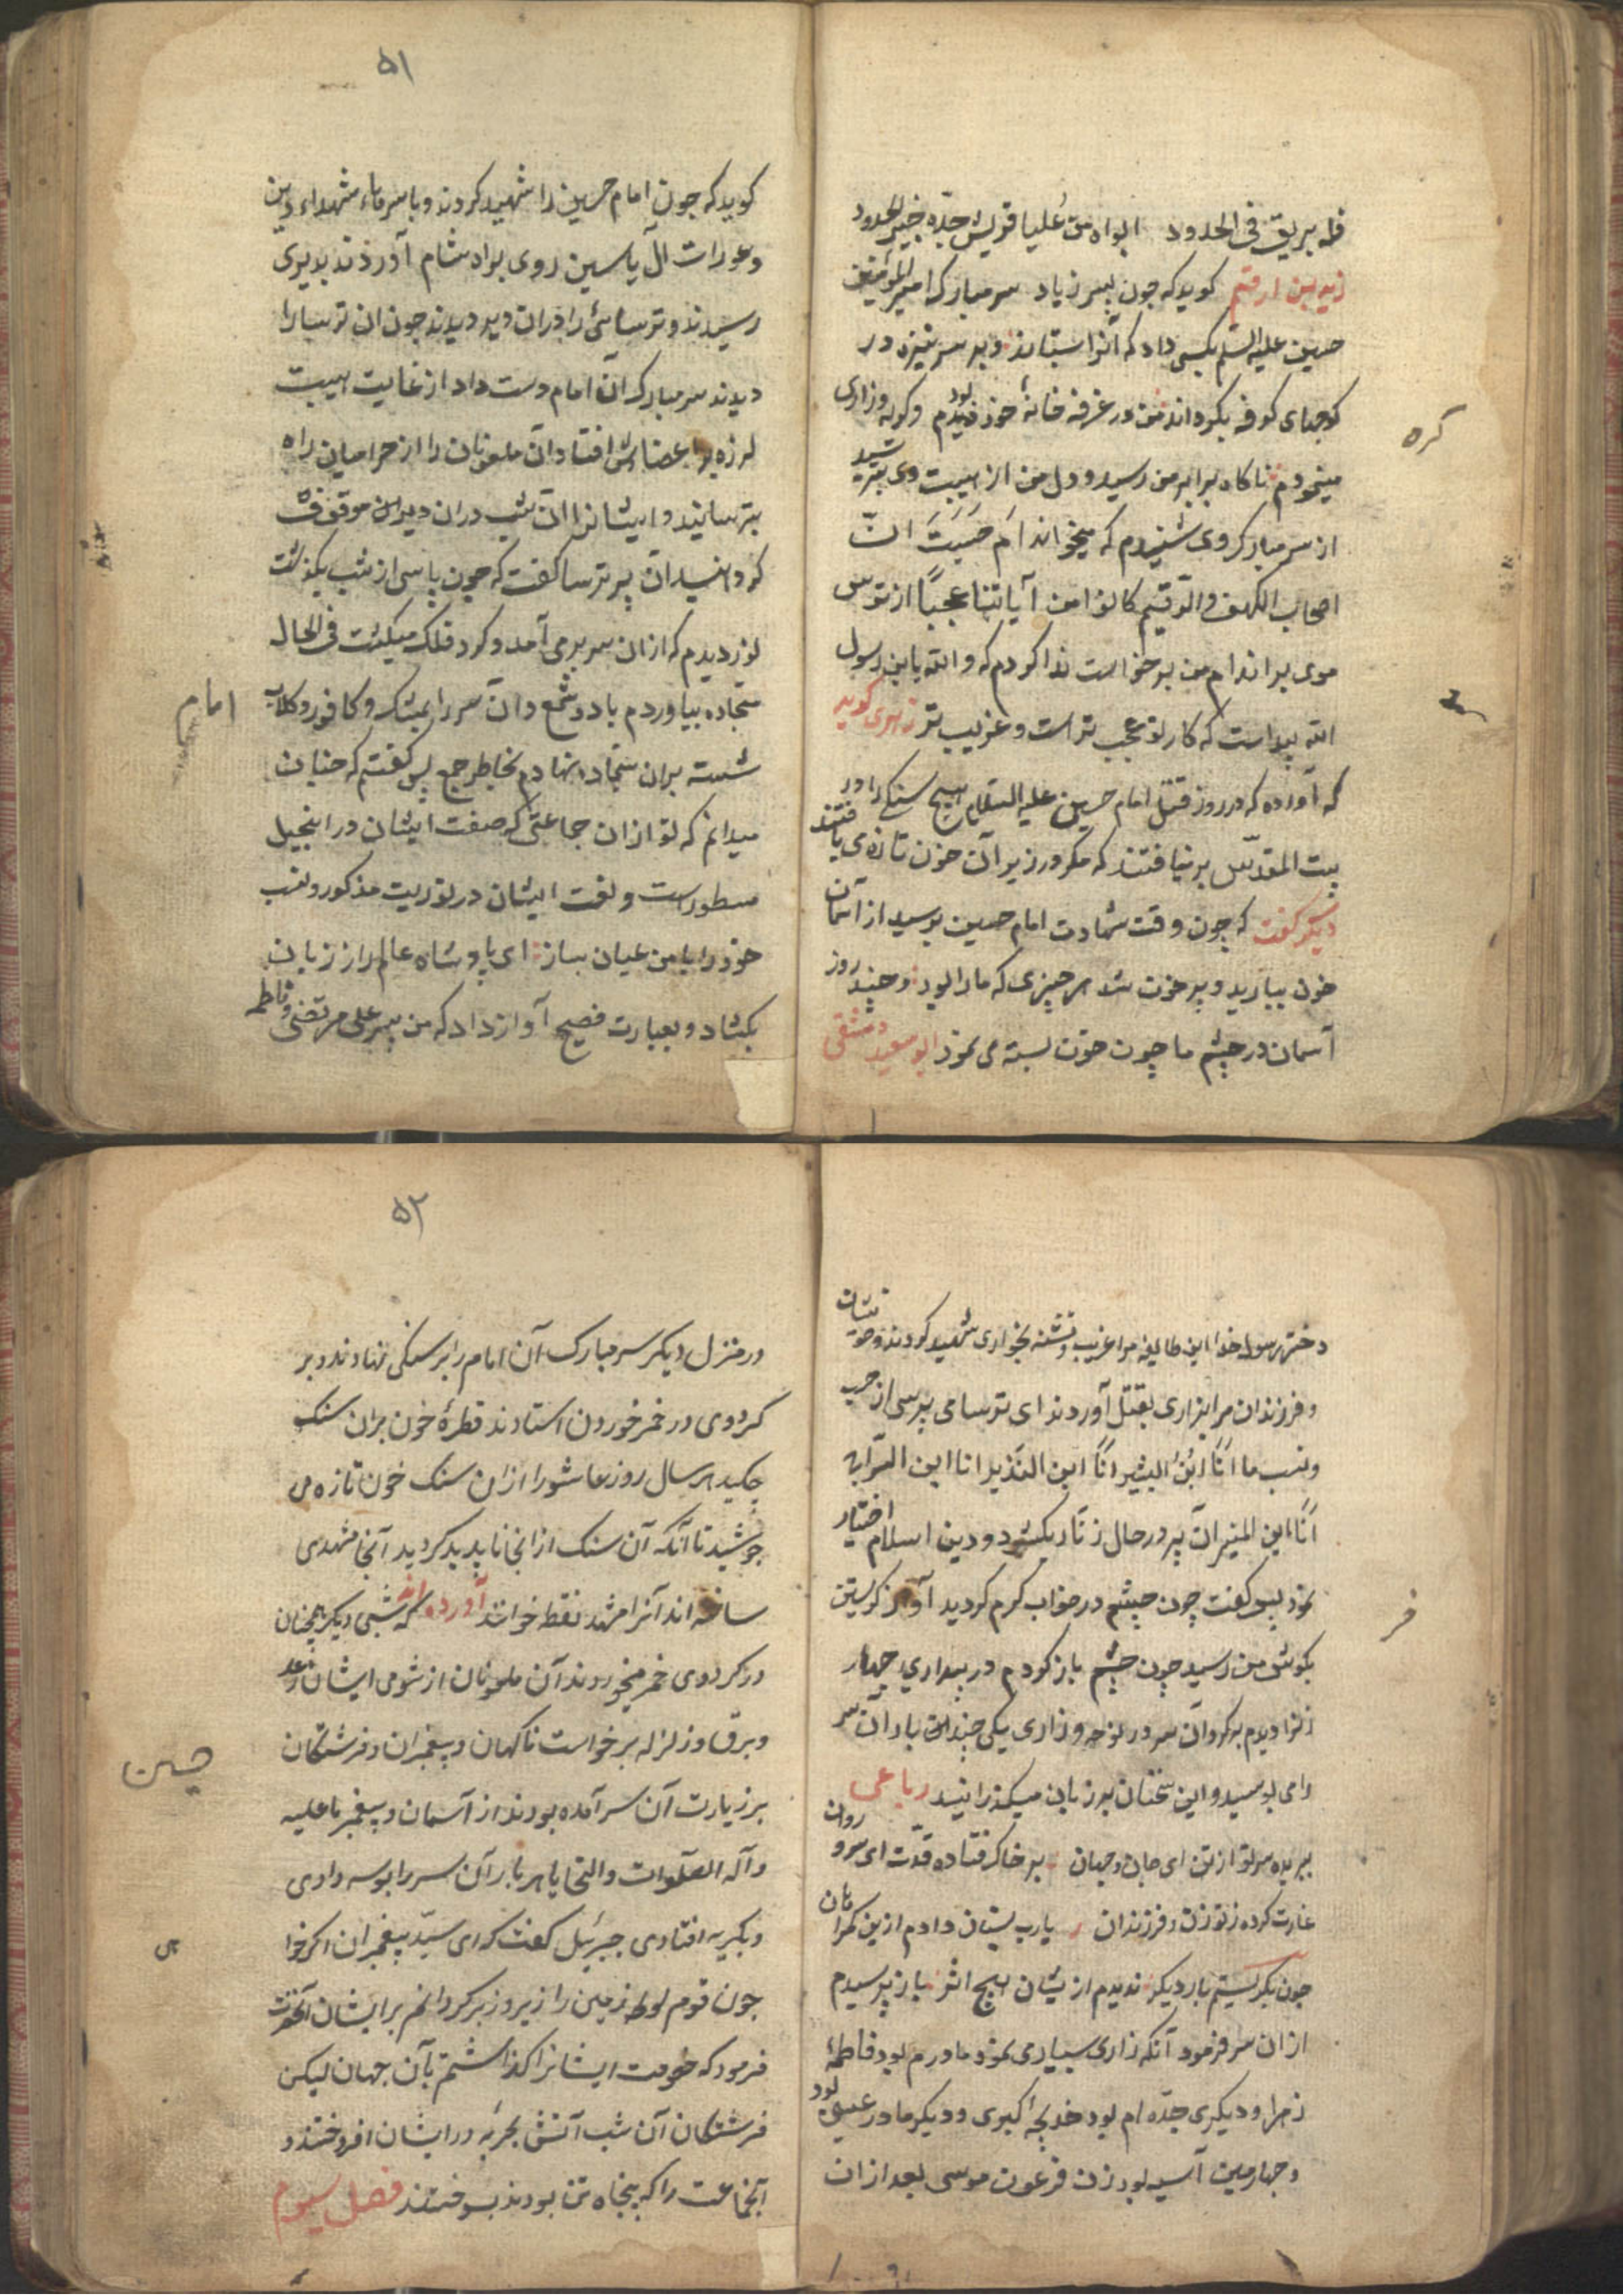 فله بریق فی الخدود ابواه من علیا قریش جده خیر الجدود
زید بن ارقم گوید که چون پسر زیاد سر مبارک امیر المؤمنین
حسین علیه السلم بکسی داد که آنرا بستاند و بر سر نیزه در
کوچهای کوفه بگرداند من در غرفه خانهٔ خود بودم و گریه و زاری
مینمودم ناگاه برابر من رسید و دل من از هیبت وی بترسید
از سر مبارک وی شنیدم که میخواند اَم حَسِبتَ انّ
اصحاب الکهف والرّقیم کانوا من آیاتنا عجباً از ترس
موی بر اندام من برخواست ندا کردم که والله یا بن رسول
الله پیداست که کار تو عجب تر است و غریب تر زهری گوید
که آورده که در روز قتل امام حسین علیه السّلام هیچ سنگ را در
بیت المقدّس برنیافتند که مگر در زیر آن خون تازه می یافتند
دیگر گفت که چون وقت شهادت امام حسین برسید از آسمان
خون ببارید و پر خون شد هر چیزی که ما را بود و چند روز
آسمان در چشم ما چون خون بسته می نمود ابو سعید دمشقی
کره
۵۱
گوید که چون امام حسین را شهید کردند و با سرهاء شهداء دین
و عورات آل یاسین روی براه شام آوردند بدیری
رسیدند و ترسائی را در آن دیر دیدند چون آن ترسا را
دیدند سر مبارک آن امام دست داد از غایت هیبت
لرزه بر اعضاش افتاد آن ملعونان را از حرامیان راه
بترسانید و ایشانرا آن شب در آن دیر موقوف
کرد آن پیر ترسا گفت که چون پاسی از شب بگذشت
نور دیدم که از آن سر برمی آمد و گرد فلک میگشت فی الحال
سجّاده بیاوردم با دو شمع و آن سر را بمشک و کافور و گلاب
شسته بر آن سجّاده نهادم بخاطر جمع پس گفتم که چنان
میدانم که تو از آن جماعتی که صفت ایشان در انجیل
مسطور است و نعت ایشان در توریت مذکور و نسب
خود را با من عیان ساز ای پادشاه عالم راز زبان
بگشاد و بعبارت فصیح آواز داد که من پسر علی مرتضی و فاطمه
امام
دختر رسول خدا این طایفه مرا غریب و تشنه بخواری شهید کردند و خویشان
و فرزندان مرا بزاری بقتل آوردند ای ترسا می پرسی از حسب
و نسب ما اَنا ابن البشیر اَنا ابن النّذیر انا ابن السّراج
اَنا ابن المنیر آن پیر در حال زنّار بگشود و دین اسلام اختیار
نمود پس گفت چون چشم در خواب گرم گردید آواز گریستن
بگوش من رسید چون چشم باز کردم در بیداری چهار
زنرا دیدم بر گرد آن سر در نوحه و زاری یکی چندان بار آن سر
را می بوسید و این سخنان بر زبان میگذرانید رباعی
ببریده سر تو از تن ای جان و جهان بر خاک فتاده قدّت ای سرو روان
غارت کرده ز تو زن و فرزندان یا رب بستان دادم ازین گمراهان
چون بگریستم بار دیگر ندیدم از یشان هیچ اثر باز پرسیدم
از آن سر فرمود آنکه زاری بسیاری نمود مادرم بود فاطمهٔ
زهرا و دیگری جدّه ام بود خدیجهٔ کبری و دیگر مادر عیسی بود
و چهارمین آسیه بود زن فرعون موسی بعد از آن
۵۲
در منزل دیگر سر مبارک آن امام را بر سنگی نهادند و بر
گرد وی در خمر خوردن استادند قطرهٔ خون بر آن سنگ
چکید هر سال روز عاشورا از آن سنگ خون تازه می
جوشید تا آنکه آن سنگ از آنجا ناپدید گردید آنجا مشهدی
ساخته اند آنرا مشهد نقطه خوانند آورده اند که شبی دیگر همچنان
در گرد وی خمر میخوردند آن ملعونان از شومی ایشان رعد
و برق و زلزله برخواست ناگهان و پیغمبران و فرشتگان
بر زیارت آن سر آمده بودند از آسمان و پیغمبر ما علیه
و آله الصّلوات والتحایا هر بار آن سر را بوسه دادی
و بگریه افتادی جبرئیل گفت که ای سیّد پیغمبران اگر خواهی
چون قوم لوط زمین را زیر و زبر گردانم بر ایشان آنحضرت
فرمود که خصومت ایشانرا گذاشتم بآن جهان لیکن
فرشتگان آن شب آتش بحربه در ایشان افروختند و
آنجماعت را که پنجاه تن بودند بسوختند فصل سیوم
حسین